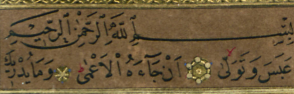 بِسْمِ اللَّهِ الرَّحْمَٰنِ الرَّحِيمِ
عَبَسَ وَتَوَلَّى أَنْ جَاءَهُ الْأَعْمَى وَمَا يُدْرِيكَ